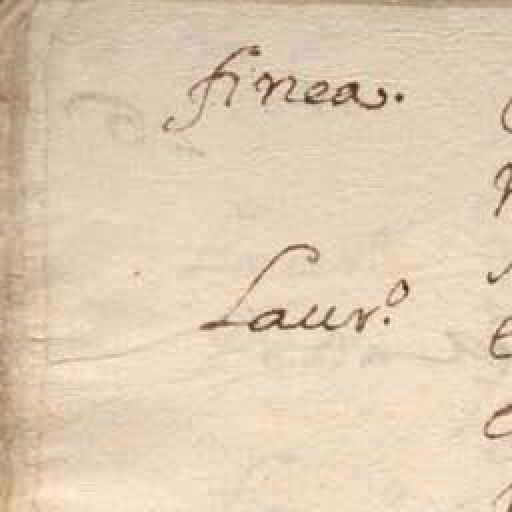 finea.
Laur.º